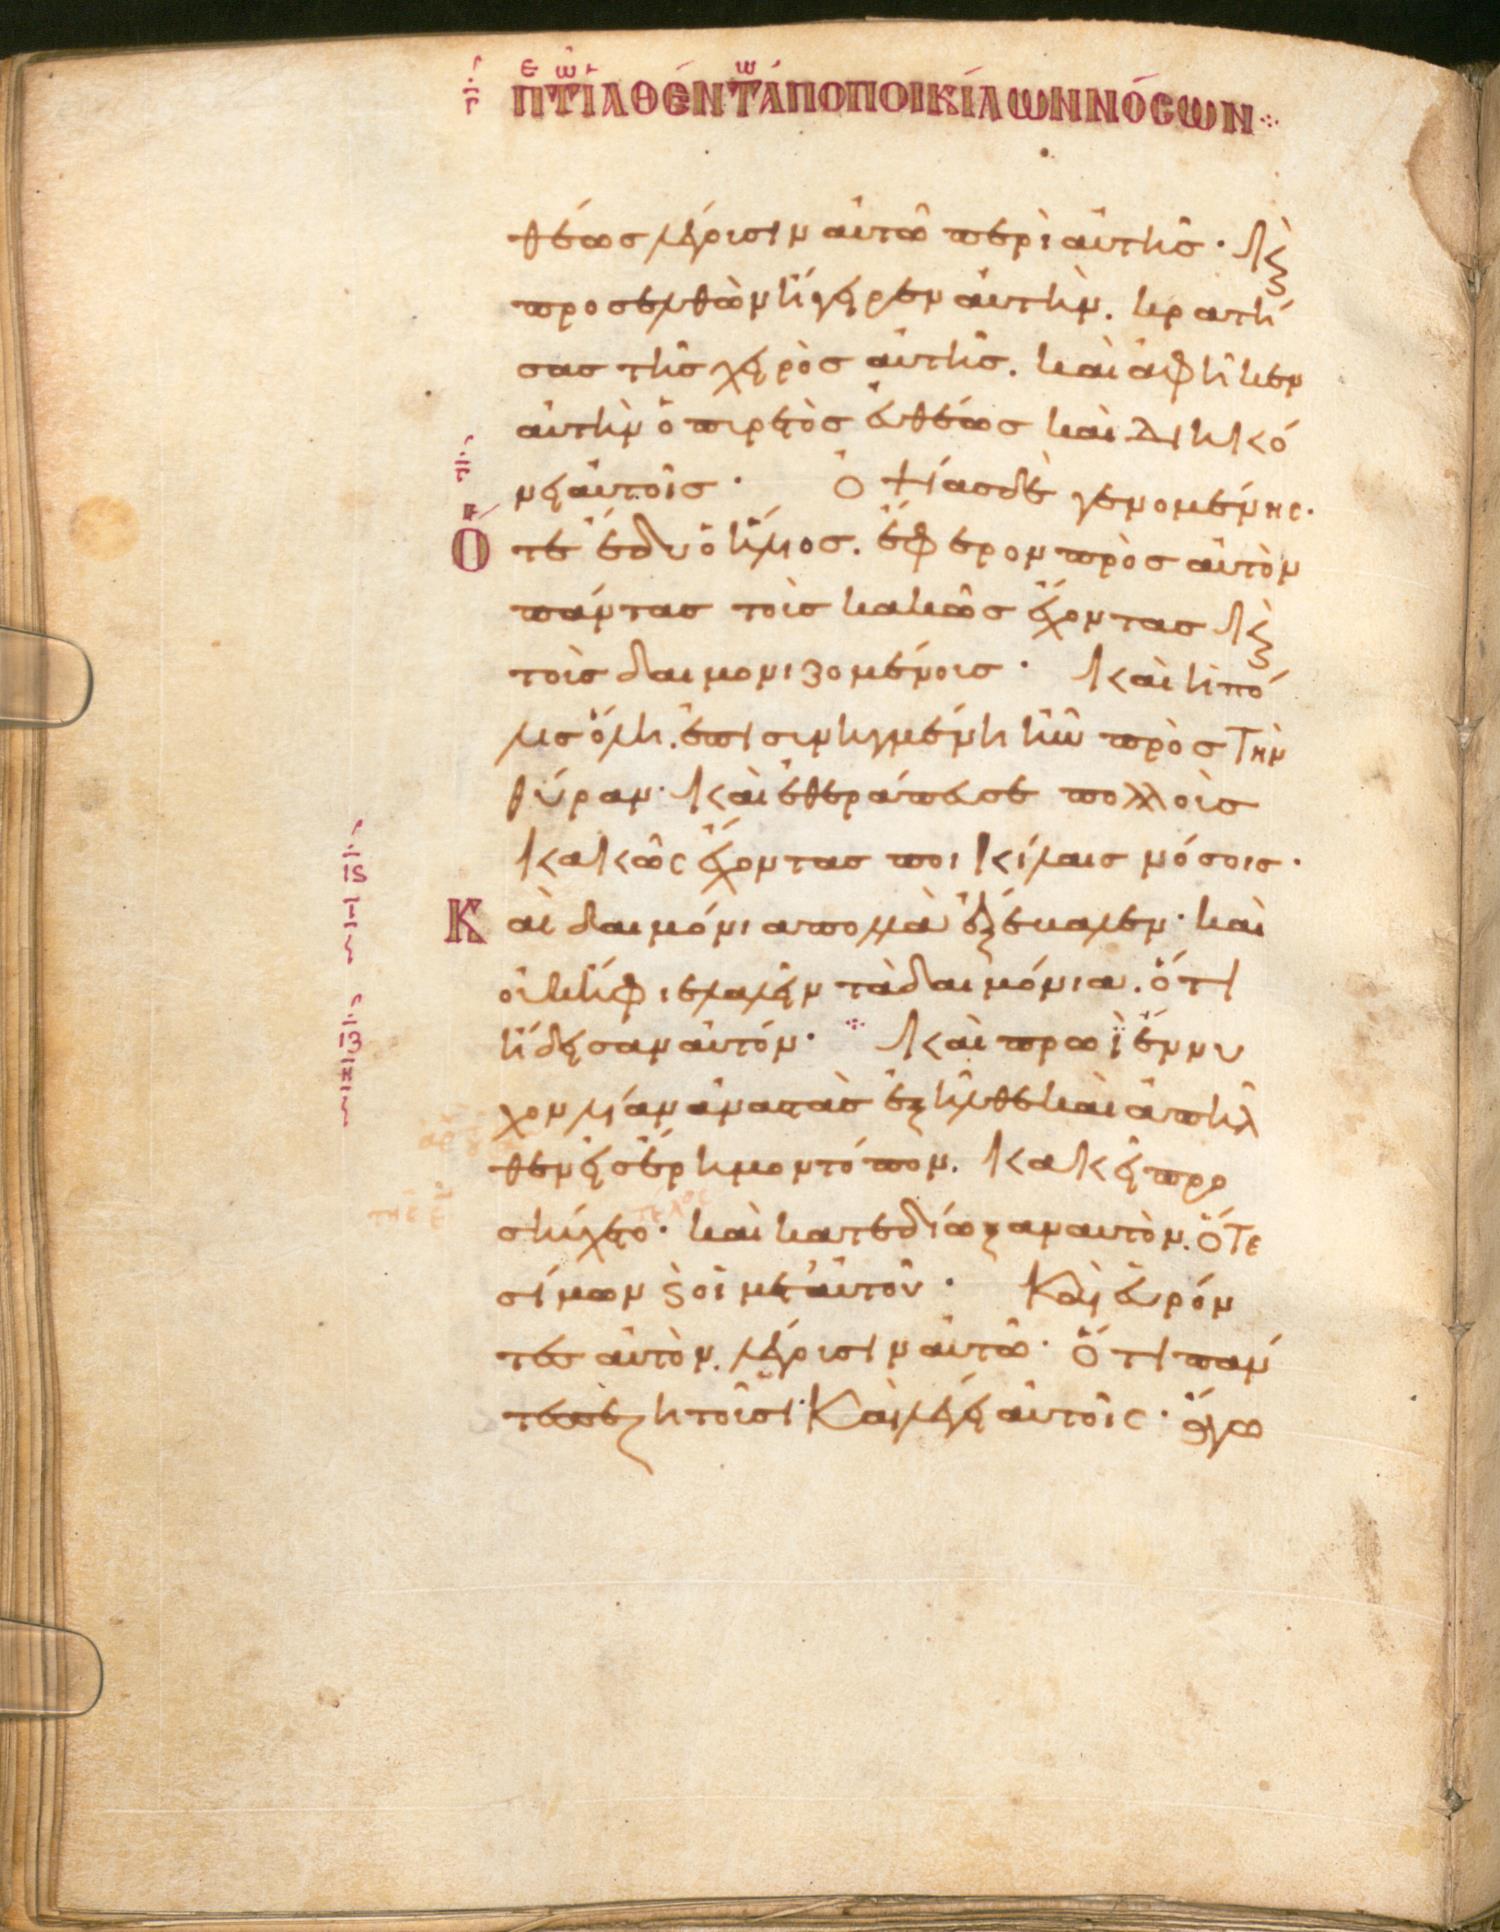 γ̅ πε τῶ ἰαθέντω ἀπὸ ποικίλων νόσων
θέως λέγουσιν αὐτῶ περὶ αὐτῆς· καὶ
προσελθὼν ἤγειρεν αὐτὴν. κρατή
σας τῆς χειρὸς αὐτῆς. καὶ ἀφῆκεν
αὐτὴν ὁ πυρετὸς εὐθέως καὶ διηκό
νει αὐτοῖς· Ὀψίας δὲ γενομένης·
Ὅτε ἔδυ ὁ ἥλιος. ἔφερον πρὸς αὐτὸν
πάντας τοὺς κακῶς ἔχοντας καὶ
τοὺς δαιμονιζομένους· καὶ ἡ πό
λις ὅλη. ἐπισυνηγμένη ἦν πρὸς τὴν
θύραν· καὶ ἐθεράπευσε πολλοὺς
κακῶς ἔχοντας ποικίλαις νόσοις·
Καὶ δαιμόνια πολλὰ ἐξέβαλεν· καὶ
οὐκ ἤφιε λαλεῖν τὰ δαιμόνια. ὅτι
ἤδεισαν αὐτόν· καὶ πρωῒ ἔννυ
χον λίαν ἀναστὰς ἐξῆλθε καὶ ἀπῆλ
θεν εἰς ἔρημον τόπον. κακεῖ προ
σηύχετο· καὶ κατεδίωξαν αὐτὸν. ὅτε
σίμων καὶ οἱ μετ αὐτοῦ· καὶ εὑρόν
τες αὐτὸν. λέγουσιν αὐτῶ· ὅτι πάν
τες σὲ ζητοῦσι· καὶ λέγει αὐτοῖς· ἄγω